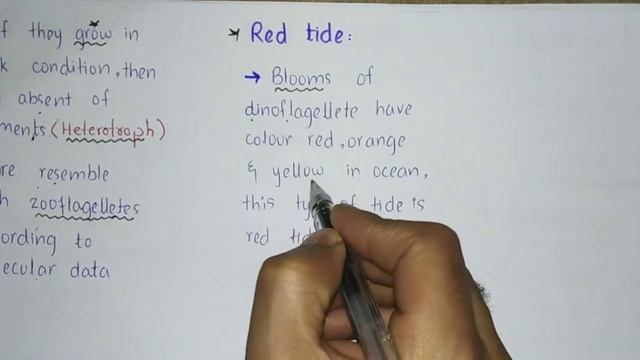 f they grow in
k condition, then
absent of
ments (Heterotroph)
re resemble
h zooflagelletes.
ording to
ecular data
* Red tide:
→ Blooms of
dinoflagellete have
colour red, orange
& yellow in ocean,
this of tide is
red